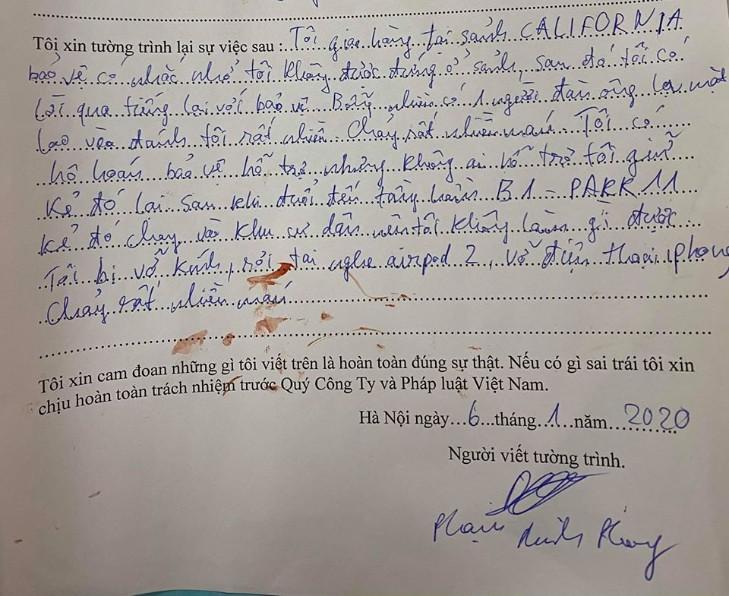 Tôi xin tường trình lại sự việc sau : Tôi giao hàng tại sảnh CALIFORNIA
bảo vệ có nhắc nhở tôi không được đứng ở sảnh, sau đó tôi có
lời qua tiếng lại với bảo vệ. Bỗng nhiên có 1 người đàn ông lạ mặt
lao vào đánh tôi rất nhiều. Chảy rất nhiều máu. Tôi có
hô hoán bảo vệ hỗ trợ nhưng không ai hỗ trợ tôi giữ
kẻ đó lại sau khi đuổi đến tầng hầm B1 - PARK 11
kẻ đó chạy vào khu cư dân nên tôi không làm gì được
Tôi bị vỡ kính, rơi tai nghe airpod 2, vỡ điện thoại iphone
Chảy rất nhiều máu
Tôi xin cam đoan những gì tôi viết trên là hoàn toàn đúng sự thật. Nếu có gì sai trái tôi xin
chịu hoàn toàn trách nhiệm trước Quý Công Ty và Pháp luật Việt Nam.
Hà Nội ngày 6 tháng 1 năm 2020
Người viết tường trình.
Phạm